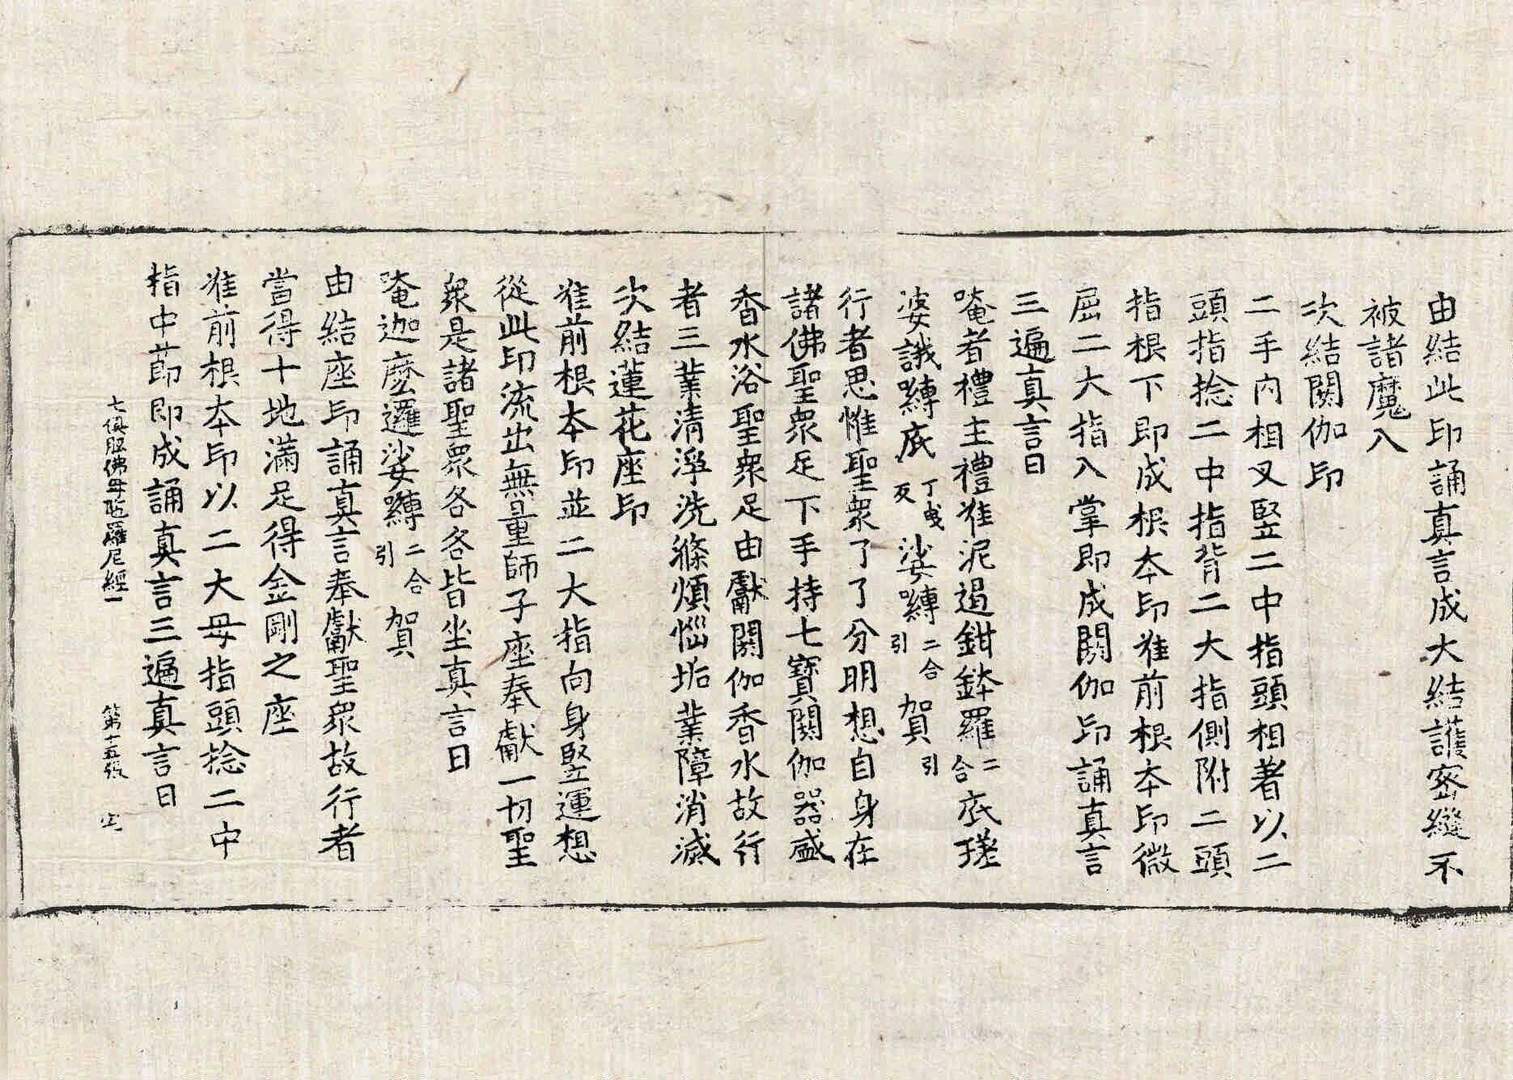 由結此印誦真言成大結護密縫不
被諸魔入
次結閼伽印
二手內相叉竪二中指頭相著以二
頭指捻二中指背二大指側附二頭
指根下即成根本印准前根本印微
屈二大指入掌即成閼伽印誦真言
三遍真言曰
唵者禮主禮准泥遏鉗鉢羅二合底瑳
婆誐嚩底丁曳反娑嚩二合引賀引
行者思惟聖衆了了分明想自身在
諸佛聖衆足下手持七寶閼伽器盛
香水浴聖衆足由獻閼伽香水故行
者三業清淨洗滌煩惱垢業障消滅
次結蓮花座印
准前根本印並二大指向身竪運想
從此印流出無量師子座奉獻一切聖
衆是諸聖衆各各皆坐真言曰
唵迦麽邏娑嚩二合引賀
由結座印誦真言奉獻聖衆故行者
當得十地滿足得金剛之座
准前根本印以二大母指頭捻二中
指中節即成誦真言三遍真言曰
七俱胝佛母陁羅尼經一 第十五張